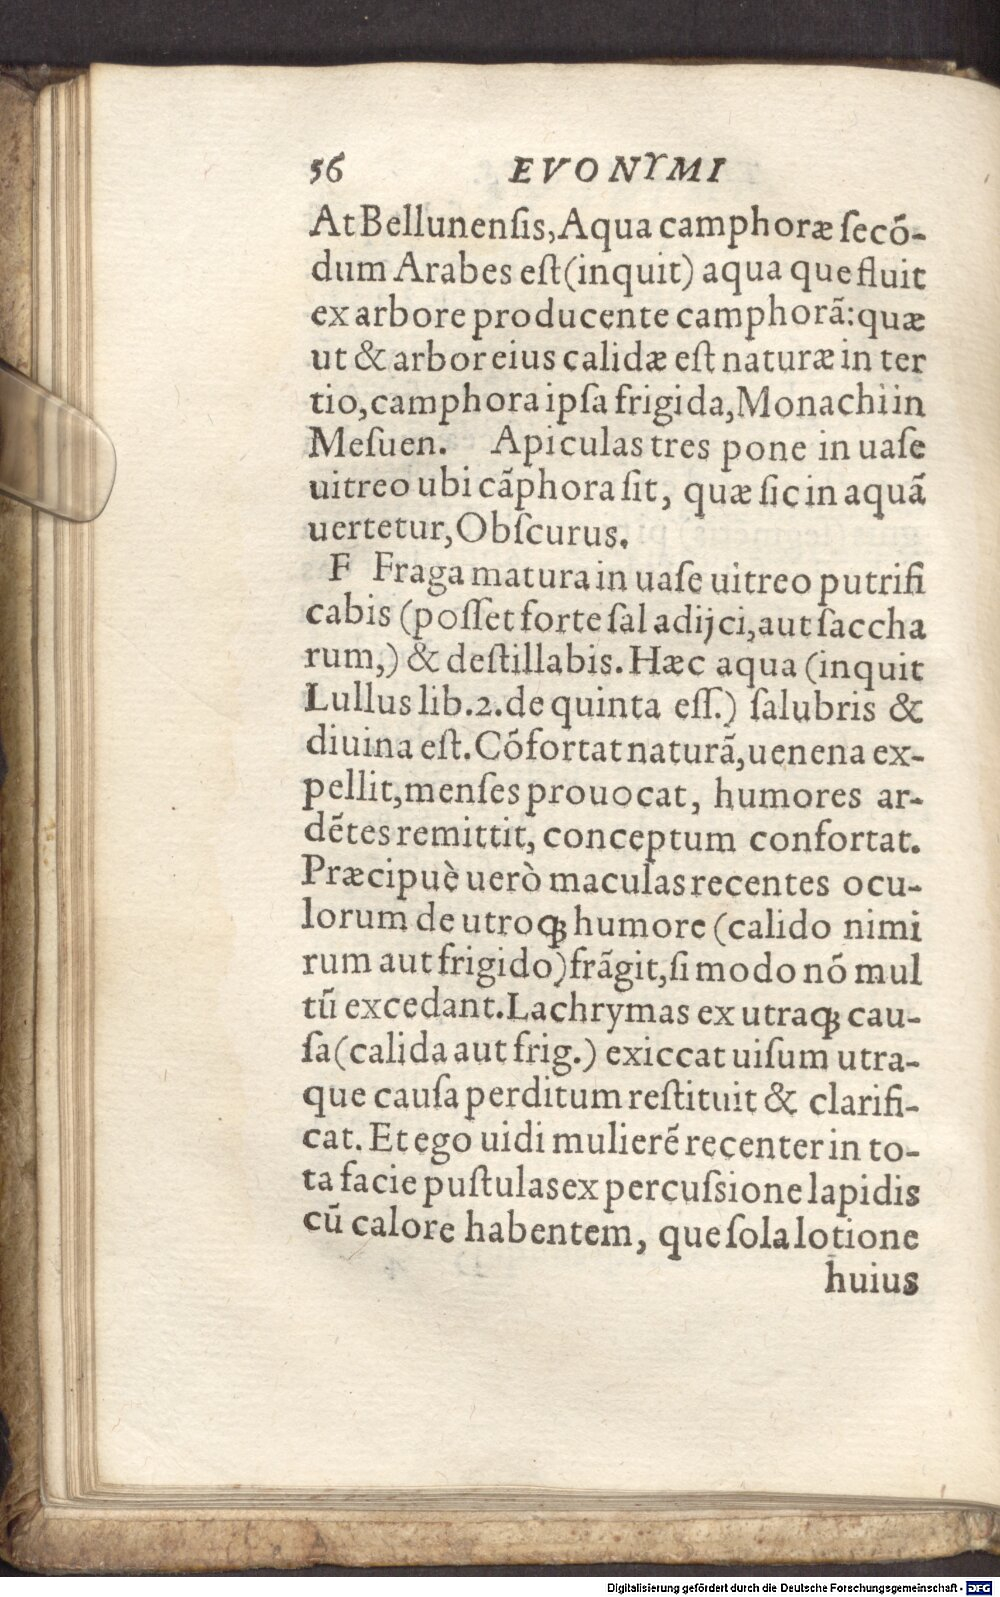 56 EVONYMI
At Bellunenſis, Aqua camphoræ ſecõ-
dum Arabes eſt (inquit) aqua que fluit
ex arbore producente camphorã: quæ
ut & arbor eius calidæ eſt naturæ in ter
tio, camphora ipſa frigida, Monachi in
Meſuen. Apiculas tres pone in uaſe
uitreo ubi cãphora ſit, quæ ſic in aquã
uertetur, Obſcurus.
F Fraga matura in uaſe uitreo putrifi
cabis (poſſet forte ſal adijci, aut ſaccha
rum,) & deſtillabis. Hæc aqua (inquit
Lullus lib. 2. de quinta eſſ.) ſalubris &
diuina eſt. Cõfortat naturã, uenena ex-
pellit, menſes prouocat, humores ar-
dẽtes remittit, conceptum confortat.
Præcipuè uerò maculas recentes ocu-
lorum de utroq̃ humore (calido nimi
rum aut frigido) frãgit, ſi modo nõ mul
tũ excedant. Lachrymas ex utraq̃ cau-
ſa (calida aut frig.) exiccat uiſum utra-
que cauſa perditum reſtituit & clarifi-
cat. Et ego uidi mulierẽ recenter in to-
ta facie puſtulas ex percuſsione lapidis
cũ calore habentem, que ſola lotione
huius
Digitalisierung gefördert durch die Deutsche Forschungsgemeinschaft - DFG